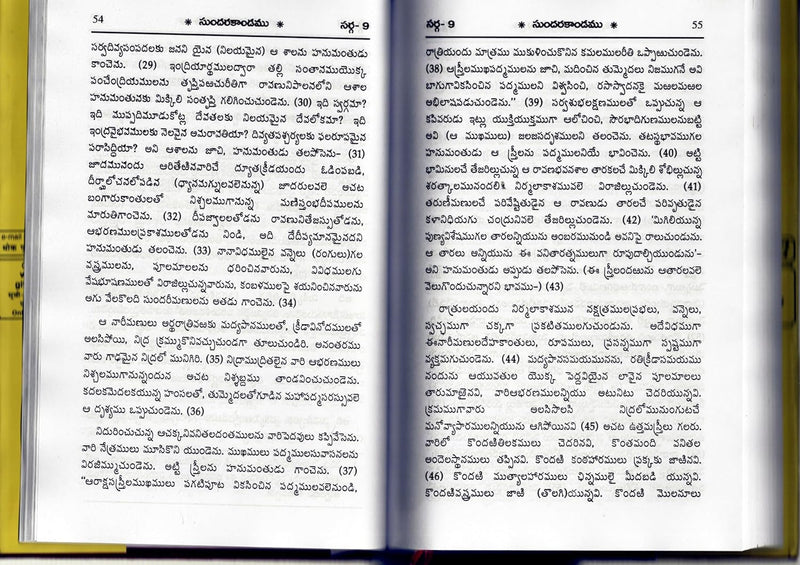 54
* సుందరకాండము *
సర్గ- 9
సర్వదివ్యసంపదలకు జనని యైన (నిలయమైన) ఆ శాలను హనుమంతుడు
కాంచెను. (29) ఇంద్రియార్థములద్వారా తల్లి సంతానముయొక్క
పంచేంద్రియములను తృప్తిపఱచురీతిగా రావణునిపాలనలోని ఆశాల
హనుమంతునకు మిక్కిలి సంతృప్తి గలిగించుచుండెను. (30) ఇది స్వర్గమా?
ఇది ముప్పదిమూడుకోట్ల దేవతలకు నిలయమైన దేవలోకమా? ఇది
ఇంద్రవైభవములకు నెలవైన అమరావతియా? దివ్యతపశ్చర్యలకు ఫలరూపమైన
పరాసిద్ధియా? అని ఆశాలను జూచి, హనుమంతుడు తలపోసెను- (31)
జూదమునందు ఆరితేఱినవారిచే ద్యూతక్రీడయందు ఓడింపబడి,
దీర్ఘాలోచనలోపడిన (ధ్యానమగ్నులవలెనున్న) జూదరులవలె అచట
బంగారుకాంతులతో నిశ్చలముగానున్న మణిస్తంభదీపములను
మారుతిగాంచెను. (32) దీపజ్వాలలతోడను రావణునితేజస్సుతోడను,
ఆభరణములప్రకాశములతోడను నిండి, అది దేదీప్యమానమైనదని
హనుమంతుడు తలంచెను. (33) నానావిధములైన వన్నెలు (రంగులు)గల
వస్త్రములను, పూలమాలలను ధరించినవారును, వివిధములగు
వేషభూషణములతో విరాజిల్లుచున్నవారును, కంబళములపై శయనించినవారును
అగు వేలకొలది సుందరీమణులను అతడు గాంచెను. (34)
ఆ నారీమణులు అర్ధరాత్రివఱకు మద్యపానములతో, క్రీడావినోదములతో
అలసిపోయి, నిద్ర క్రమ్ముకొనివచ్చుచుండగా తూలుచుండిరి. అనంతరము
వారు గాఢమైన నిద్రలో మునిగిరి. (35) నిద్రాముద్రితలైన వారి ఆభరణములు
నిశ్చలముగానున్నందున అచట నిశ్శబ్దము తాండవించుచుండెను.
కదలకమెదలకయున్న హంసలతో, తుమ్మెదలతోగూడిన మహాపద్మసరస్సువలె
ఆ దృశ్యము ఒప్పుచుండెను. (36)
నిదురించుచున్న ఆచక్కనివనితలదంతములను వారిపెదవులు కప్పివేసెను.
వారి నేత్రములు మూసికొని యుండెను. ముఖములు పద్మములసువాసనలను
విరజిమ్ముచుండెను. అట్టి స్త్రీలను హనుమంతుడు గాంచెను. (37)
"ఆరాక్షసస్త్రీలముఖములు పగటిపూట వికసించిన పద్మములవలెనుండి,
సర్గ- 9
* సుందరకాండము *
55
రాత్రియందు మాత్రము ముకుళించుకొనిన కమలములరీతి ఒప్పారుచుండెను.
(38) ఆస్త్రీలముఖపద్మములను జూచి, మదించిన తుమ్మెదలు నిజముగనే అవి
బాగుగావికసించిన పద్మములని విశ్వసించి, రసాస్వాదనకై మఱలమఱల
అభిలాషపడుచుండెను." (39) సర్వశుభలక్షణములతో ఒప్పుచున్న ఆ
కపివరుడు ఇట్లు యుక్తియుక్తముగా ఆలోచించి, సౌరభాదిగుణములనుబట్టి
అవి (ఆ ముఖములు) జలజసదృశములని తలంచెను. తటస్థభావముగల
హనుమంతుడు ఆ స్త్రీలను పద్మములనియే భావించెను. (40) అట్టి
భామినులచే తేజరిల్లుచున్న ఆ రావణభవనశాల తారకలచే మిక్కిలి శోభిల్లుచున్న
శరత్కాలమునందలి నిర్మలాకాశమువలె విరాజిల్లుచుండెను. (41)
తరుణీమణులచే పరివేష్టితుడైన ఆ రావణుడు తారలచే పరివృతుడైన
కళానిధియగు చంద్రునివలె తేజరిల్లుచుండెను. (42) 'మిగిలియున్న
పుణ్యవిశేషములగ తారలన్నియును అంబరమునుండి అవనిపై రాలుచుండును.
ఆ తారలు అన్నియును ఈ వనితారత్నములుగా రూపుదాల్చియుండును'-
అని హనుమంతుడు అప్పుడు తలపోసెను. (ఈ స్త్రీలందఱును ఆతారలవలె
వెలుగొందుచున్నారని భావము-) (43)
రాత్రులయందు నిర్మలాకాశమున నక్షత్రములప్రభలు, వన్నెలు,
స్వచ్ఛముగా చక్కగా ప్రకటితములగుచుండును. అదేవిధముగా
ఈనారీమణులదేహకాంతులు, రూపములు, ప్రసన్నముగా స్పష్టముగా
వ్యక్తమగుచుండెను. (44) మద్యపానసమయమునను, రతిక్రీడాసమయము
నందును ఆయువతుల యొక్క పెద్దవియైన లావైన పూలమాలలు
తారుమాఱైనవి, వారిఆభరణములన్నియు అటునిటు చెదరియున్నవి.
క్రమముగావారు అలసిసొలసి నిద్రలోమునుంగుటచే
మనోవ్యాపారములన్నియును ఆగిపోయినవి (45) అచట ఉత్తమస్త్రీలు గలరు.
వారిలో కొందఱితిలకములు చెదరినవి, కొంతమంది వనితల
అందెలస్థానములు తప్పినవి. కొందఱి కంఠహారములు ప్రక్కకు జాఱినవి.
(46) కొందఱి ముత్యాలహారములు ఛిన్నములై మీదబడి యున్నవి.
కొందఱివస్త్రములు జాఱి (తొలగి)యున్నవి. కొందఱి మొలనూలు